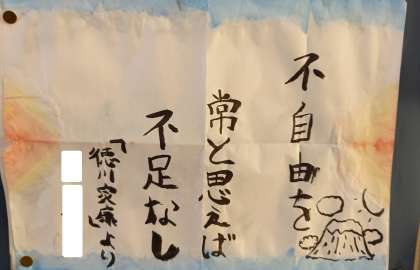 不自由を
常と思えば
不足なし
「徳川家康」より